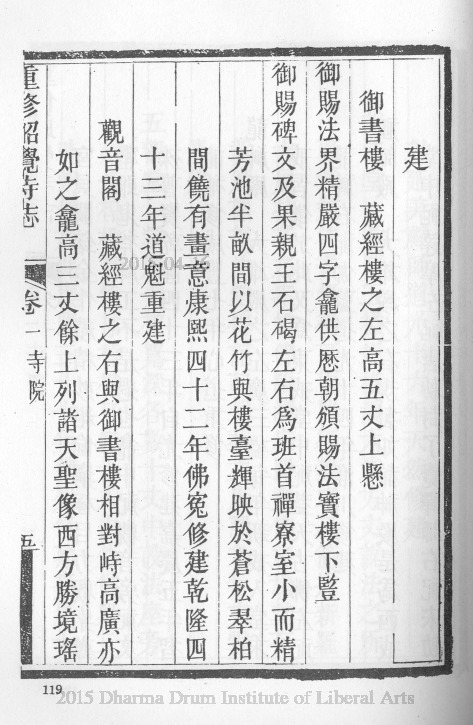 建
御書樓　藏經樓之左高五丈上懸
御賜法界精嚴四字龕供歷朝頒賜法寶樓下豎
御賜碑文及果親王石碣左右爲班首禪寮室小而精
芳池半畝間以花竹與樓臺輝映於蒼松翠柏
間饒有畫意康熙四十二年佛冤修建乾隆四
十三年道魁重建
觀音閣　藏經樓之右與御書樓相對峙高廣亦
如之龕高三丈餘上列諸天聖像西方勝境瑤
重修昭覺寺志　卷一　寺院　五
119
2015 Dharma Drum Institute of Liberal Arts